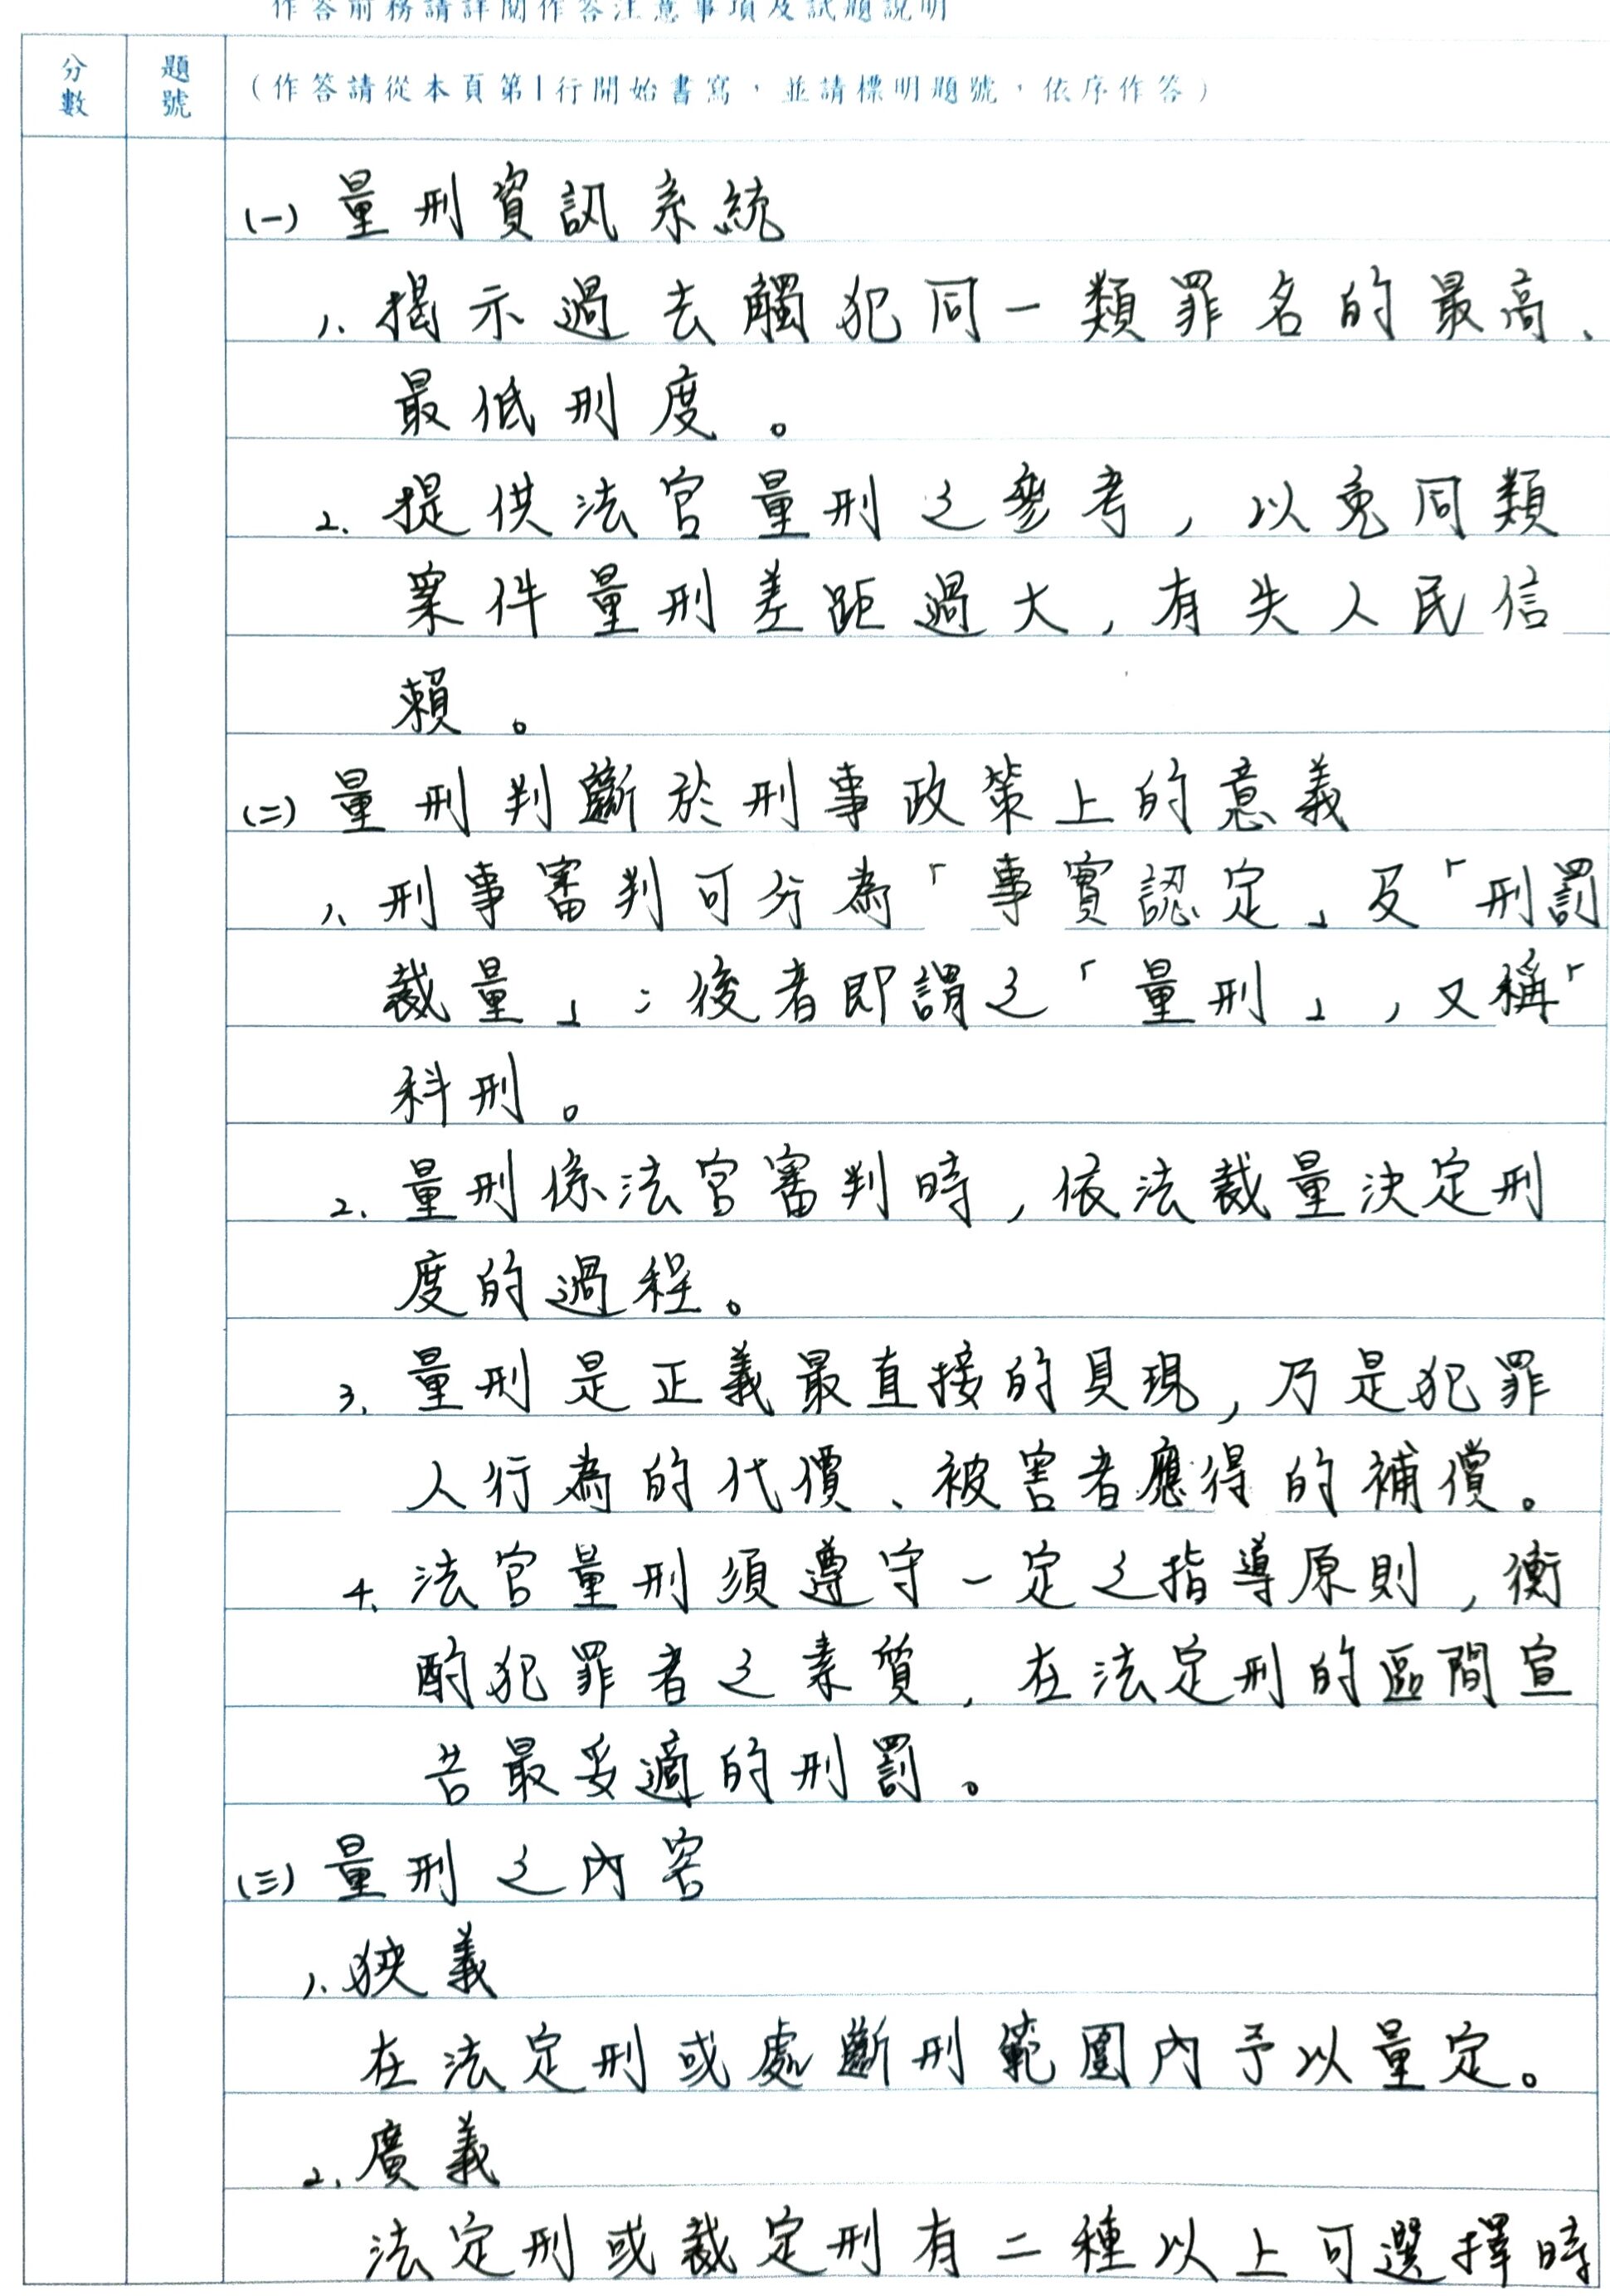 作答前務請詳閱作答注意事項及試題說明
分數
題號
（作答請從本頁第1行開始書寫，並請標明題號，依序作答）
(一) 量刑資訊系統
1. 揭示過去觸犯同一類罪名的最高、
最低刑度。
2. 提供法官量刑之參考，以免同類
案件量刑差距過大，有失人民信
賴。
(二) 量刑判斷於刑事政策上的意義
1. 刑事審判可分為「事實認定」及「刑罰
裁量」：後者即謂之「量刑」，又稱「
科刑。
2. 量刑係法官審判時，依法裁量決定刑
度的過程。
3. 量刑是正義最直接的具現，乃是犯罪
人行為的代價、被害者應得的補償。
4. 法官量刑須遵守一定之指導原則，衡
酌犯罪者之素質，在法定刑的區間宣
告最妥適的刑罰。
(三) 量刑之內容
1. 狹義
在法定刑或處斷刑範圍內予以量定。
2. 廣義
法定刑或裁定刑有二種以上可選擇時